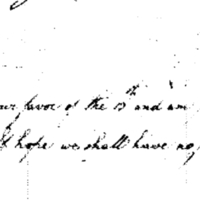 our favor of the 13th and am
I hope we shall have no